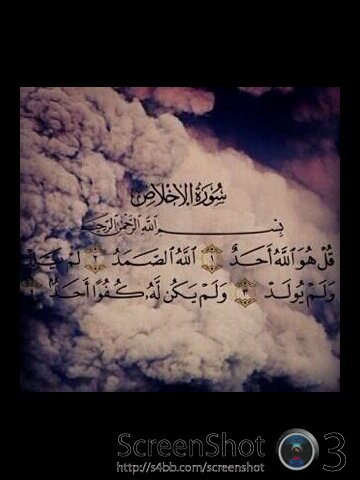 سُورَةُ الإِخْلَاصِ
بِسْمِ اللَّهِ الرَّحْمَٰنِ الرَّحِيمِ
قُلْ هُوَ اللَّهُ أَحَدٌ ١ اللَّهُ الصَّمَدُ ٢ لَمْ يَلِدْ
وَلَمْ يُولَدْ ٣ وَلَمْ يَكُن لَّهُ كُفُوًا أَحَدٌ
ScreenShot 3
http://s4bb.com/screenshot